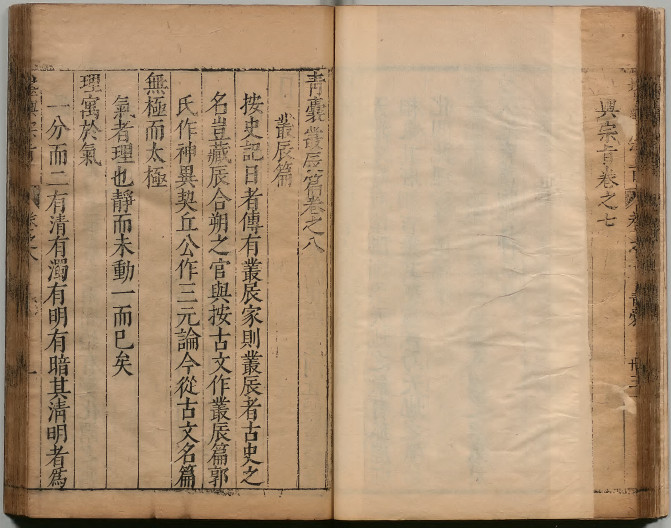 興宗言卷之七
青囊叢辰篇卷之八
叢辰篇
按史記日者傳有叢辰家則叢辰者古史之
名豈藏辰合朔之官與按古文作叢辰篇郭
氏作神異契丘公作三元論今從古文名篇
無極而太極
氣者理也靜而未動一而已矣
理寓於氣
一分而二有清有濁有明有暗其清明者爲